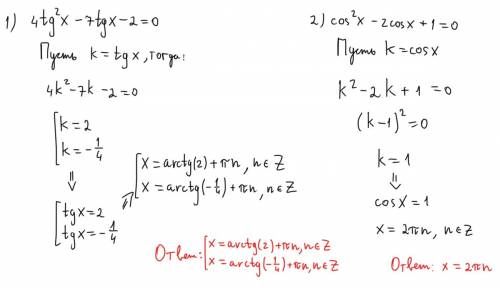 1) 4tg²x -7tgx -2 = 0
Пусть k = tgx, тогда:
4k² -7k -2 = 0
[k = 2
k = -1/4
⇓
[tgx = 2
tgx = -1/4
⇒ [x = arctg(2) + πn, n ∈ Z
x = arctg(-1/4) + πn, n ∈ Z
Ответ: [x = arctg(2) + πn, n ∈ Z
x = arctg(-1/4) + πn, n ∈ Z
2) cos²x -2cosx + 1 = 0
Пусть k = cosx
k² -2k + 1 = 0
(k-1)² = 0
k = 1
⇓
cosx = 1
x = 2πn, n ∈ Z
Ответ: x = 2πn